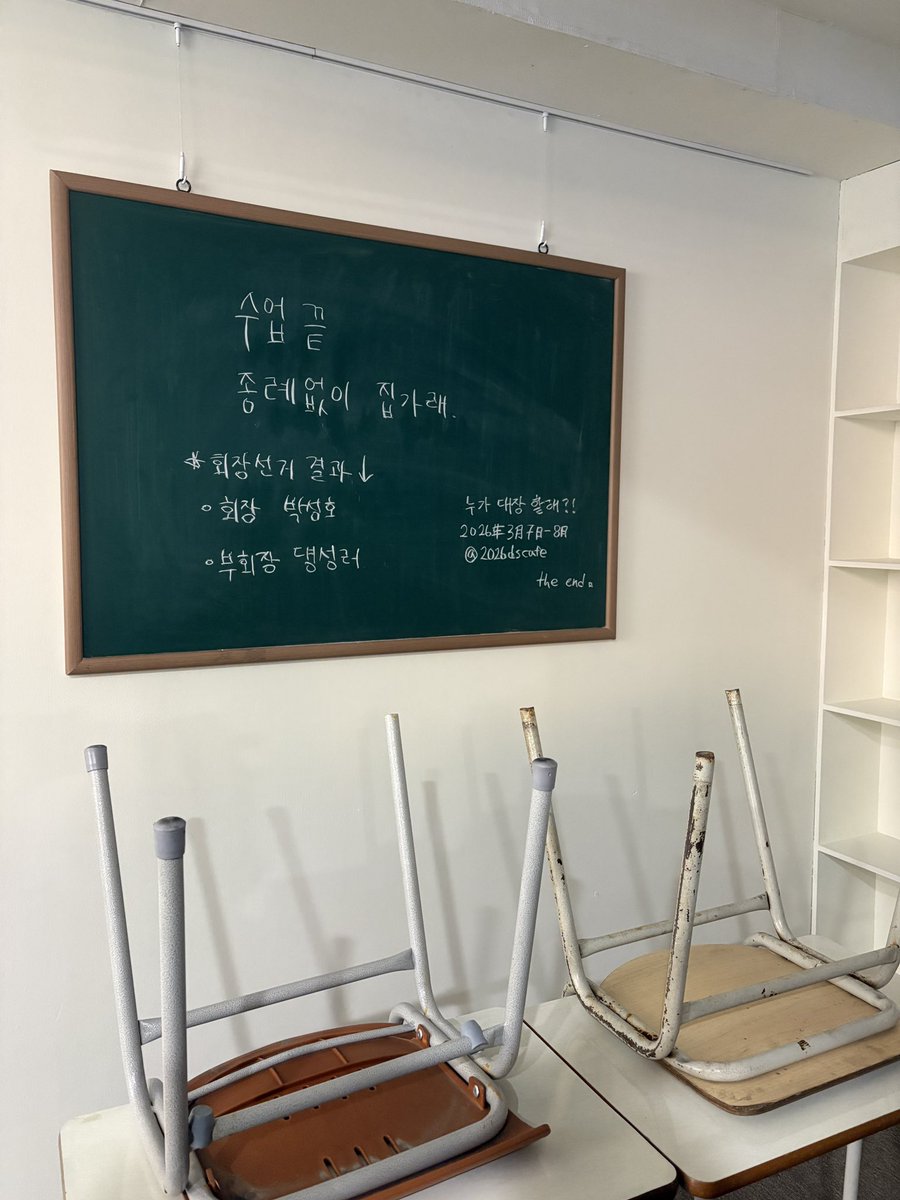 수업 끝
종례없이 집가래.
*회장선거 결과↓
◦회장 박성호
◦부회장 명성러
누가 대장 할래?!
2026年3月7日-8日
@2026dscafe
the end.